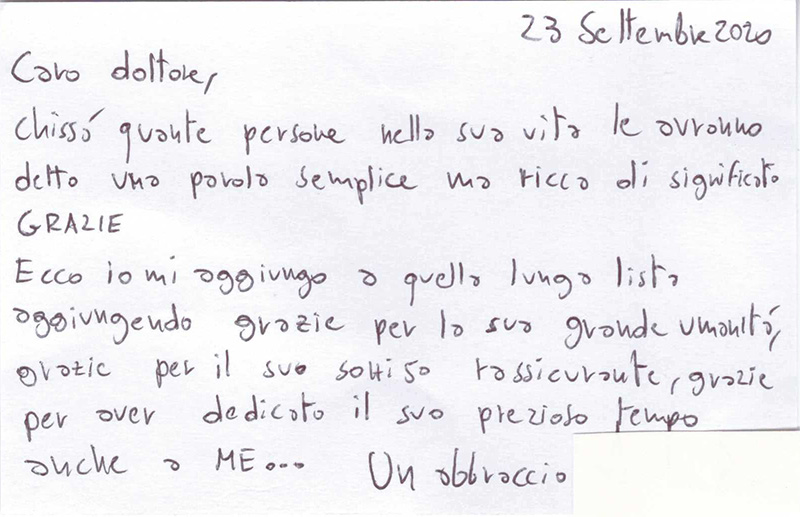 23 Settembre 2020
Caro dottore,
chissá quante persone nella sua vita le avranno
detto una parola semplice ma ricca di significato
GRAZIE
Ecco io mi aggiungo a quella lunga lista
aggiungendo grazie per la sua grande umanitá,
grazie per il suo sorriso rassicurante, grazie
per aver dedicato il suo prezioso tempo
anche a ME... Un abbraccio